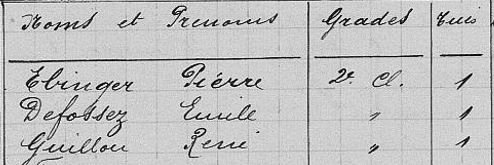 Noms et Prenoms Grades Tués
Ebinger Piérre 2e Cl. 1
Defossez Emile " 1
Guillou René " 1